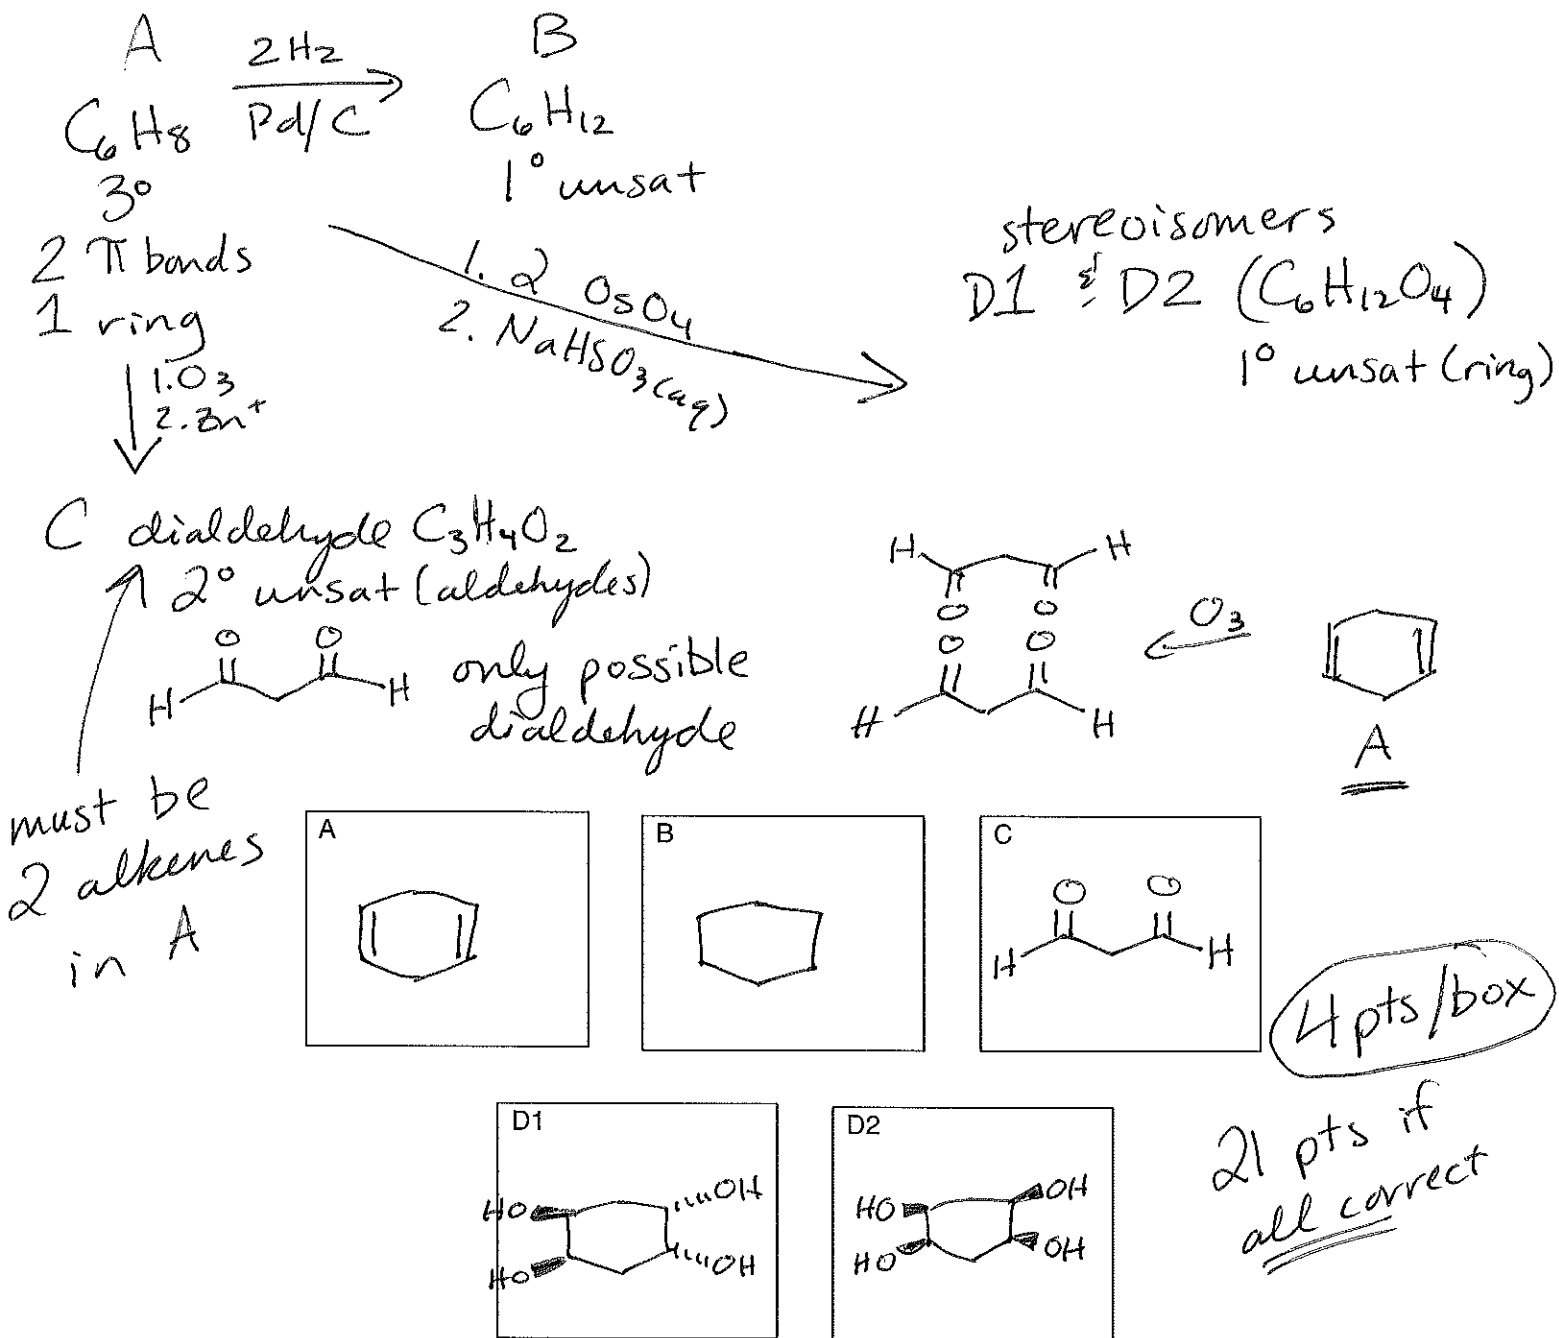 A
2H₂
B
C₆H₈
Pd/C
C₆H₁₂
3°
1° unsat
2 π bonds
1 ring
1. 2 OsO₄
2. NaHSO₃(aq)
stereoisomers
D1 & D2 (C₆H₁₂O₄)
1° unsat (ring)
1. O₃
2. Zn⁺
C dialdehyde C₃H₄O₂
2° unsat (aldehydes)
O O
H H
only possible
dialdehyde
must be
2 alkenes
in A
H H
O O
O O
H H
O₃
A
A
B
C
O O
H H
4 pts/box
21 pts if
all correct
D1
HO OH
HO OH
D2
HO OH
HO OH